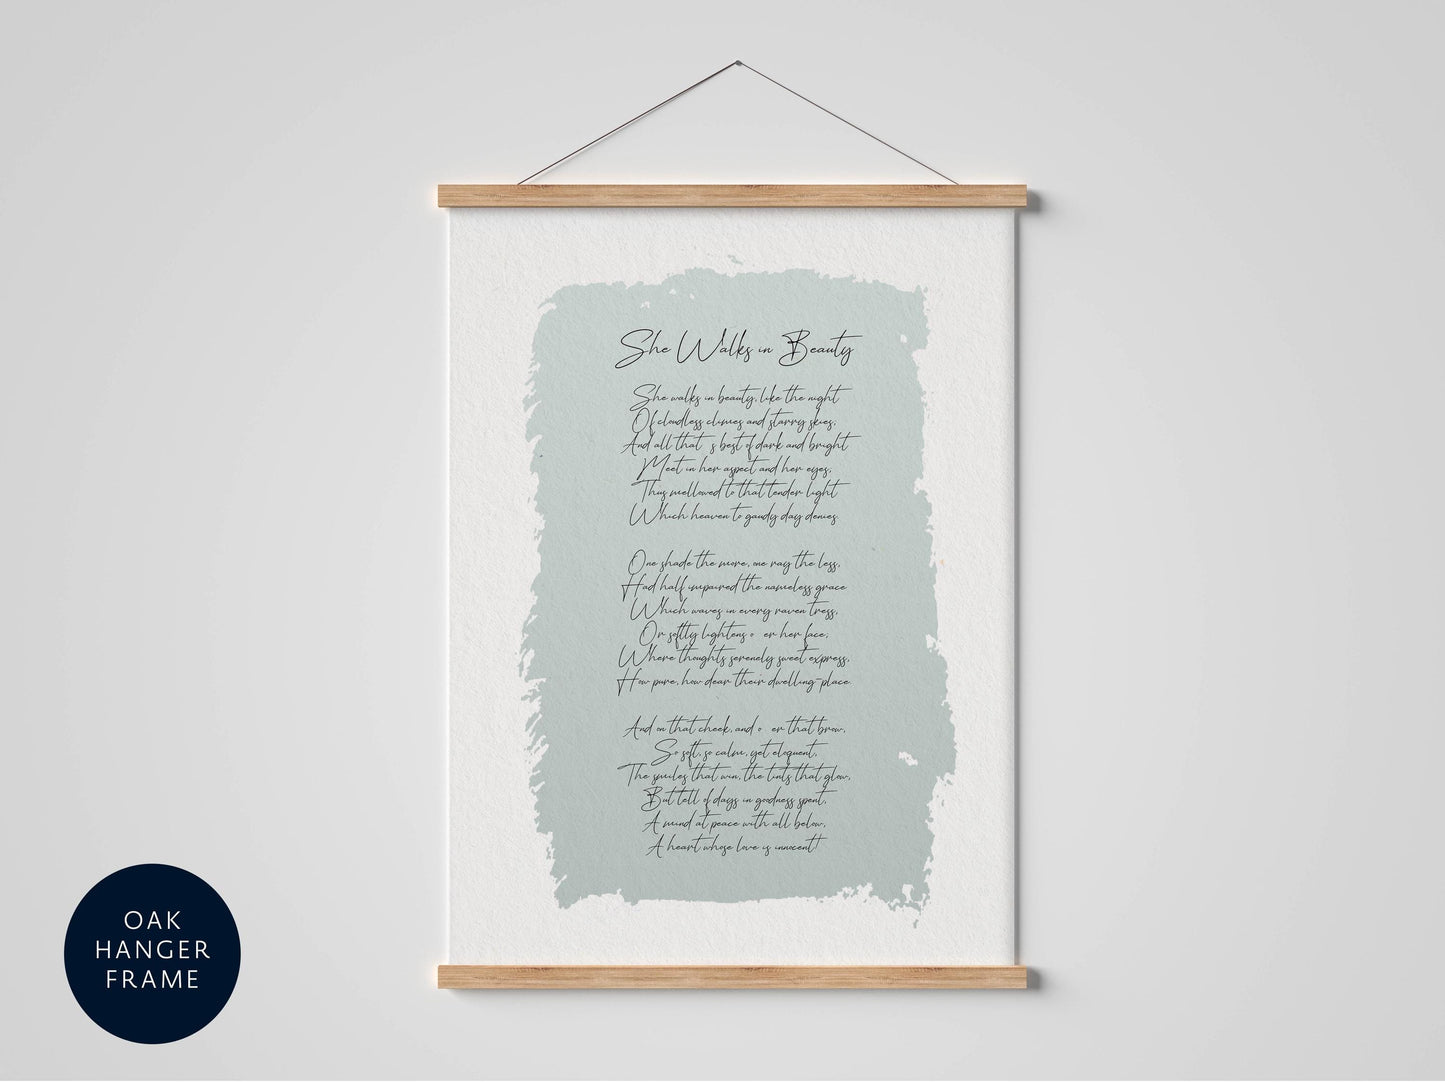 She Walks in Beauty
She walks in beauty, like the night
Of cloudless climes and starry skies,
And all that s best of dark and bright
Meet in her aspect and her eyes,
Thus mellowed to that tender light
Which heaven to gaudy day denies.
One shade the more, one ray the less,
Had half impaired the nameless grace
Which waves in every raven tress,
Or softly lightens o er her face;
Where thoughts serenely sweet express,
How pure, how dear their dwelling-place.
And on that cheek, and o er that brow,
So soft, so calm, yet eloquent,
The smiles that win, the tints that glow,
But tell of days in goodness spent,
A mind at peace with all below,
A heart whose love is innocent!
OAK
HANGER
FRAME